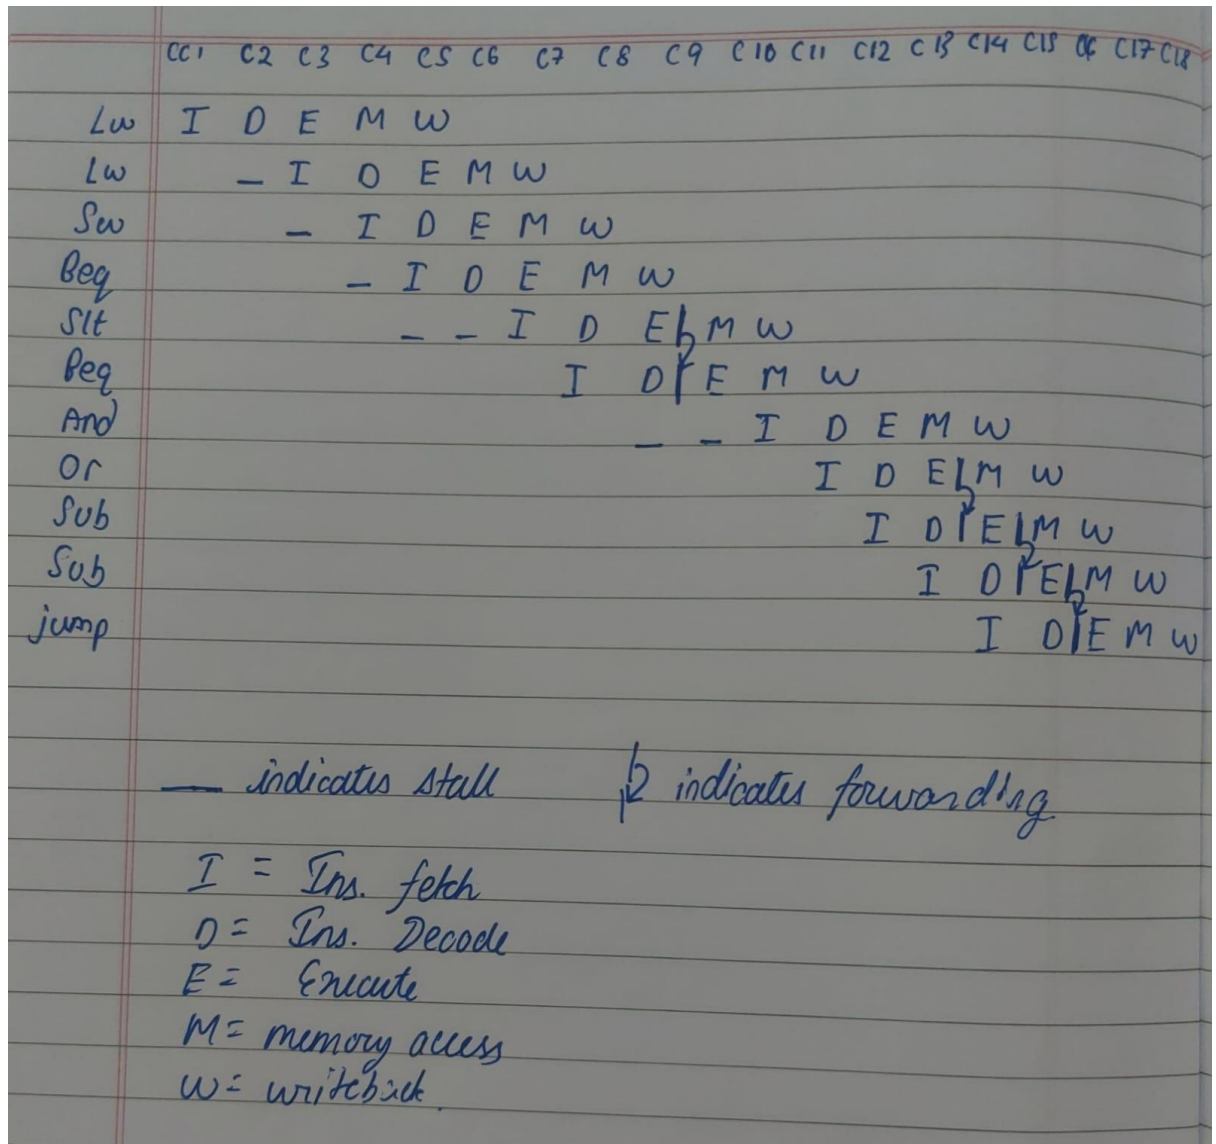 CC1 C2 C3 C4 C5 C6 C7 C8 C9 C10 C11 C12 C13 C14 C15 C16 C17 C18
Lw I D E M W
Lw – I D E M W
Sw – I D E M W
Beq – I D E M W
Slt – – I D E M W
Beq I D E M W
And – – I D E M W
Or I D E M W
Sub I D E M W
Sub I D E M W
jump I D E M W
— indicates stall indicates forwarding
I = Ins. fetch
D = Ins. Decode
E = Execute
M = memory access
W = writeback.